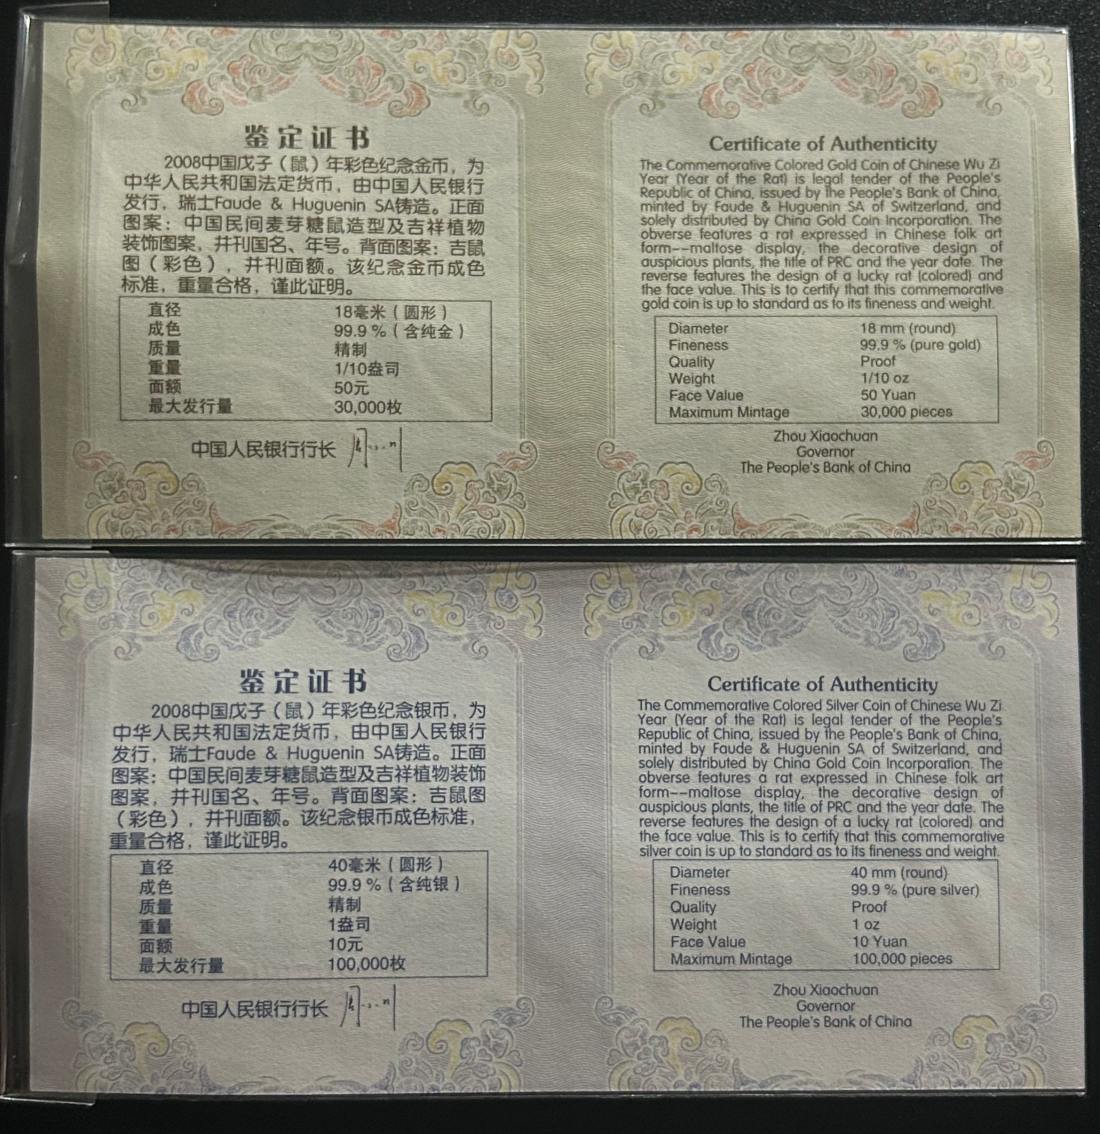 鉴定证书
2008中国戊子（鼠）年彩色纪念金币，为
中华人民共和国法定货币，由中国人民银行
发行，瑞士Faude & Huguenin SA铸造。正面
图案：中国民间麦芽糖鼠造型及吉祥植物
装饰图案，并刊国名、年号。背面图案：吉鼠
图（彩色），并刊面额。该纪念金币成色
标准，重量合格，谨此证明。
直径 18毫米（圆形）
成色 99.9％（含纯金）
质量 精制
重量 1/10盎司
面额 50元
最大发行量 30,000枚
中国人民银行行长
Certificate of Authenticity
The Commemorative Colored Gold Coin of Chinese Wu Zi
Year (Year of the Rat) is legal tender of the People's
Republic of China, issued by the People's Bank of China,
minted by Faude & Huguenin SA of Switzerland, and
solely distributed by China Gold Coin Incorporation. The
obverse features a rat expressed in Chinese folk art
form--maltose display, the decorative design of
auspicious plants, the title of PRC and the year date. The
reverse features the design of a lucky rat (colored) and
the face value. This is to certify that this commemorative
gold coin is up to standard as to its fineness and weight.
Diameter 18 mm (round)
Fineness 99.9 % (pure gold)
Quality Proof
Weight 1/10 oz
Face Value 50 Yuan
Maximum Mintage 30,000 pieces
Zhou Xiaochuan
Governor
The People's Bank of China
鉴定证书
2008中国戊子（鼠）年彩色纪念银币，为
中华人民共和国法定货币，由中国人民银行
发行，瑞士Faude & Huguenin SA铸造。正面
图案：中国民间麦芽糖鼠造型及吉祥植物装饰
图案，并刊国名、年号。背面图案：吉鼠图
（彩色），并刊面额。该纪念银币成色标准，
重量合格，谨此证明。
直径 40毫米（圆形）
成色 99.9％（含纯银）
质量 精制
重量 1盎司
面额 10元
最大发行量 100,000枚
中国人民银行行长
Certificate of Authenticity
The Commemorative Colored Silver Coin of Chinese Wu Zi
Year (Year of the Rat) is legal tender of the People's
Republic of China, issued by the People's Bank of China,
minted by Faude & Huguenin SA of Switzerland, and
solely distributed by China Gold Coin Incorporation. The
obverse features a rat expressed in Chinese folk art
form--maltose display, the decorative design of
auspicious plants, the title of PRC and the year date. The
reverse features the design of a lucky rat (colored) and
the face value. This is to certify that this commemorative
silver coin is up to standard as to its fineness and weight.
Diameter 40 mm (round)
Fineness 99.9 % (pure silver)
Quality Proof
Weight 1 oz
Face Value 10 Yuan
Maximum Mintage 100,000 pieces
Zhou Xiaochuan
Governor
The People's Bank of China